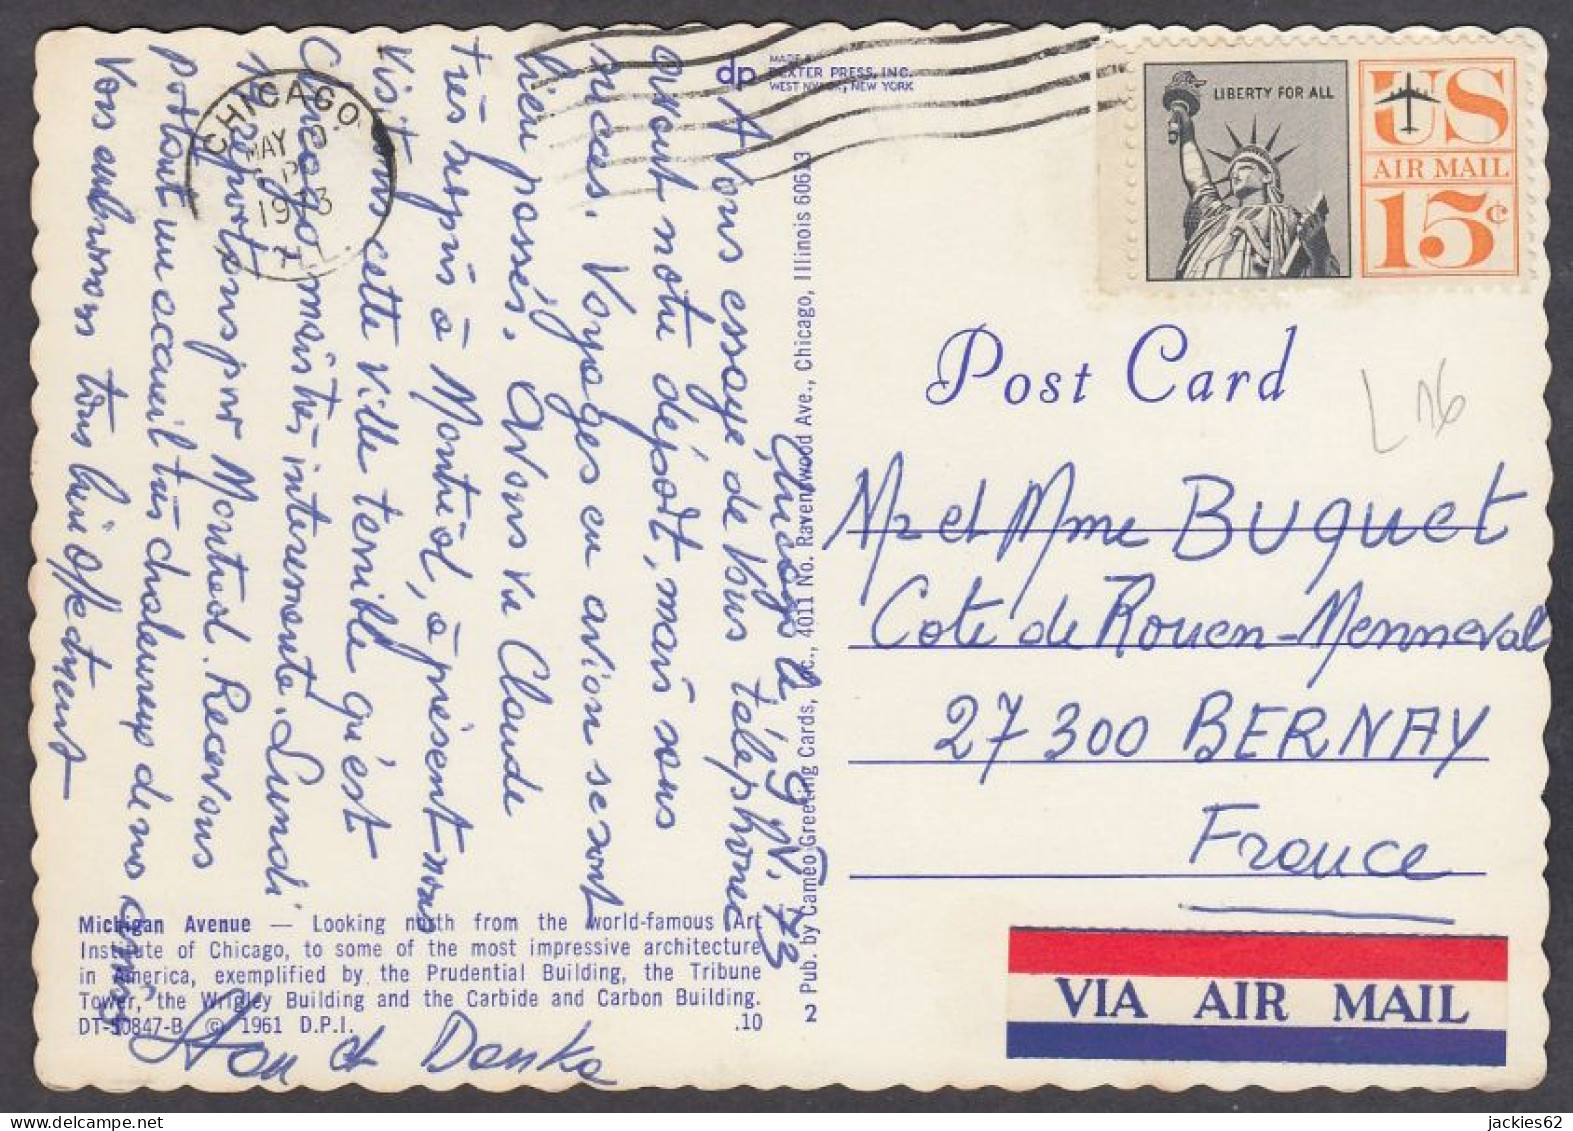 CHICAGO
MAY
1973
ILL.
dp
MADE BY
DEXTER PRESS, INC.
WEST NYACK, NEW YORK
LIBERTY FOR ALL
US
AIR MAIL
15¢
Post Card
L 16
Chicago le 9 V. 73
Avons essayé de vous téléphoner
avant notre départ, mais sans
succès. Voyages en avion se sont
bien passés. Avons vu Claude
très repris à Montréal, à présent nous
visitons cette ville terrible qu'est
Chicago
intéressante. Lundi
repartons pour Montréal. Recevons
partout un accueil très chaleureux de nos amis
Vous embrassons tous bien affectueusement
Stan et Danka
Mr et Mme BUQUET
Cote de Rouen-Menneval
27 300 BERNAY
France
Michigan Avenue — Looking north from the world-famous Art
Institute of Chicago, to some of the most impressive architecture
in America, exemplified by the Prudential Building, the Tribune
Tower, the Wrigley Building and the Carbide and Carbon Building.
DT-50847-B © 1961 D.P.I. .10
2 Pub. by Cameo Greeting Cards, Inc., 4011 No. Ravenswood Ave., Chicago, Illinois 60613
VIA AIR MAIL
jackies62